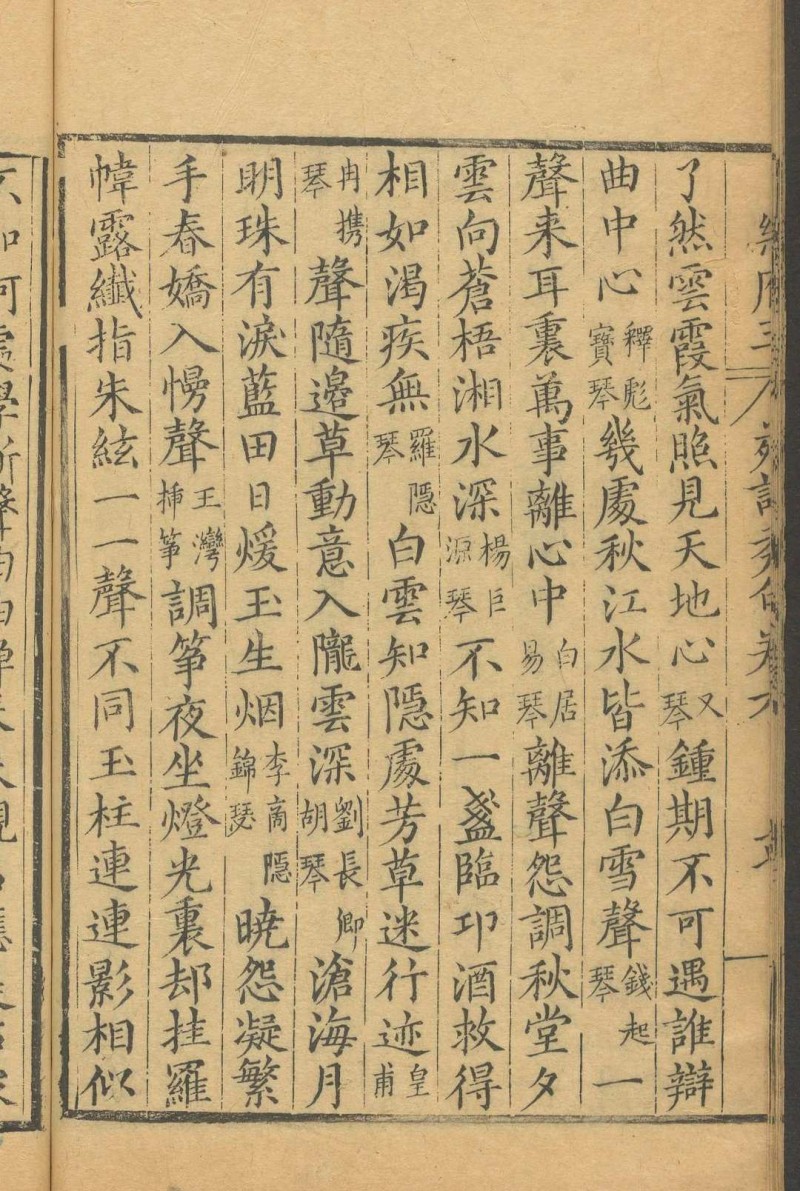 了然雲霞氣照見天地心又琴鍾期不可遇誰辯
曲中心釋彪寶琴幾處秋江水皆添白雪聲錢起琴一
聲来耳裏萬事離心中白居易琴離聲怨調秋堂夕
雲向蒼梧湘水深楊巨源琴不知一盞臨卭酒救得
相如渴疾無羅隱琴白雲知隱處芳草迷行迹皇甫
冉携琴聲隨邉草動意入隴雲深劉長卿胡琴滄海月
明珠有淚藍田日煖玉生烟李商隱錦瑟曉怨凝繁
手春嬌入慢聲王灣挿箏調箏夜坐燈光裏却挂羅
幃露纖指朱絃一一聲不同玉柱連連影相似